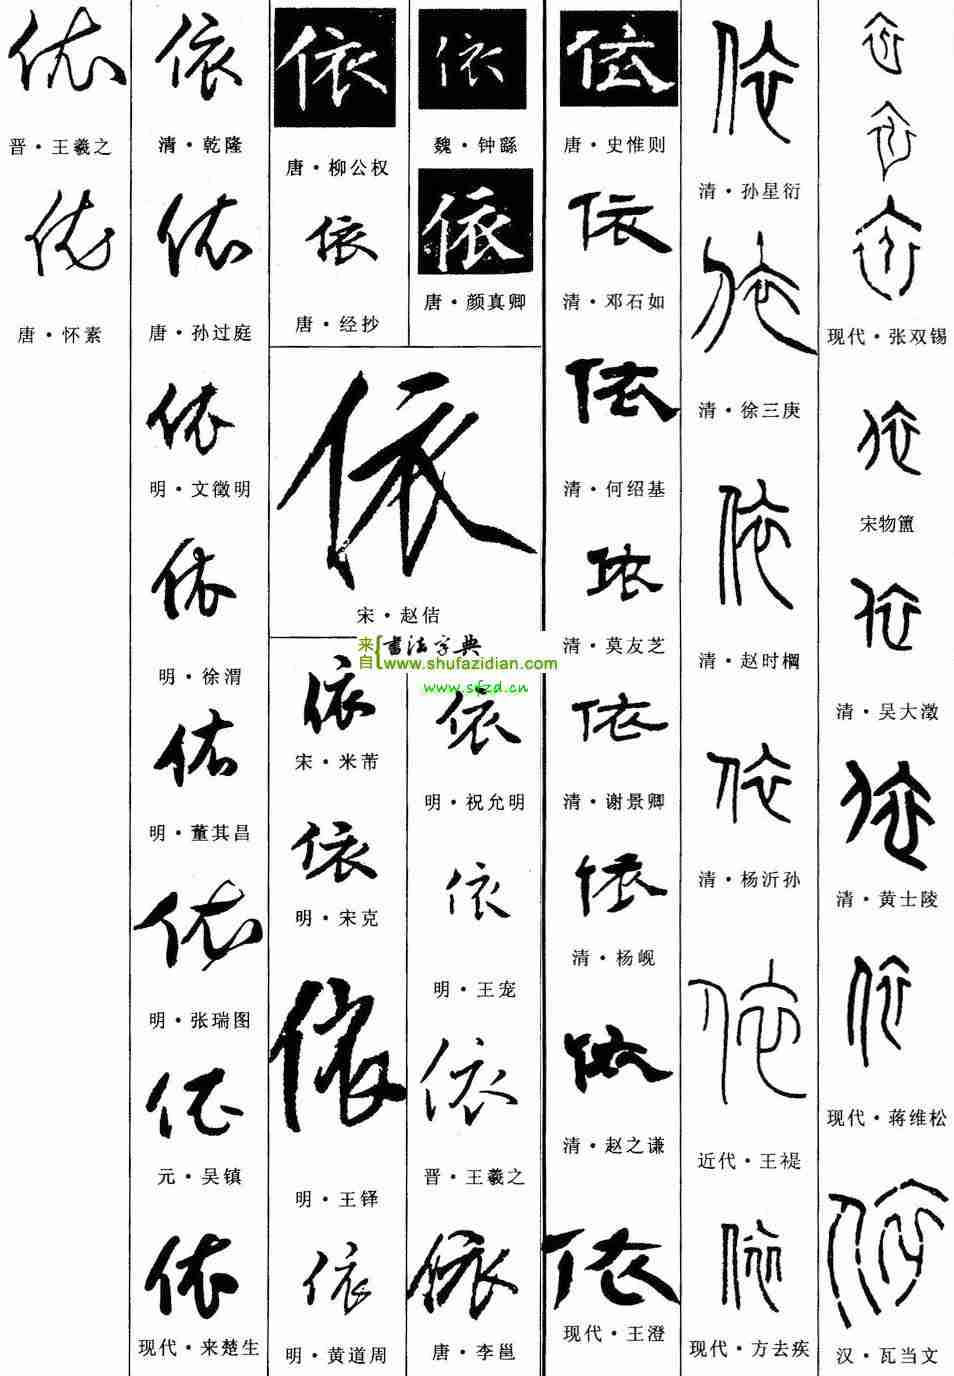 依
晋·王羲之
依
唐·怀素
依
清·乾隆
依
唐·孙过庭
依
明·文徵明
依
明·徐渭
依
明·董其昌
依
明·张瑞图
依
元·吴镇
依
现代·来楚生
依
唐·柳公权
依
唐·经抄
依
魏·钟繇
依
唐·颜真卿
依
宋·赵佶
来自{书法字典
www.shufazidian.com
www.sfzd.cn
依
宋·米芾
依
明·宋克
依
明·王铎
依
明·黄道周
依
明·祝允明
依
明·王宠
依
晋·王羲之
依
唐·李邕
依
唐·史惟则
依
清·邓石如
依
清·何绍基
依
清·莫友芝
依
清·谢景卿
依
清·杨岘
依
清·赵之谦
依
现代·王澄
依
清·孙星衍
依
清·徐三庚
依
清·赵时棡
依
清·杨沂孙
依
近代·王禔
依
现代·方去疾
依
依
依
现代·张双锡
依
宋物簠
依
清·吴大澂
依
清·黄士陵
依
现代·蒋维松
依
汉·瓦当文